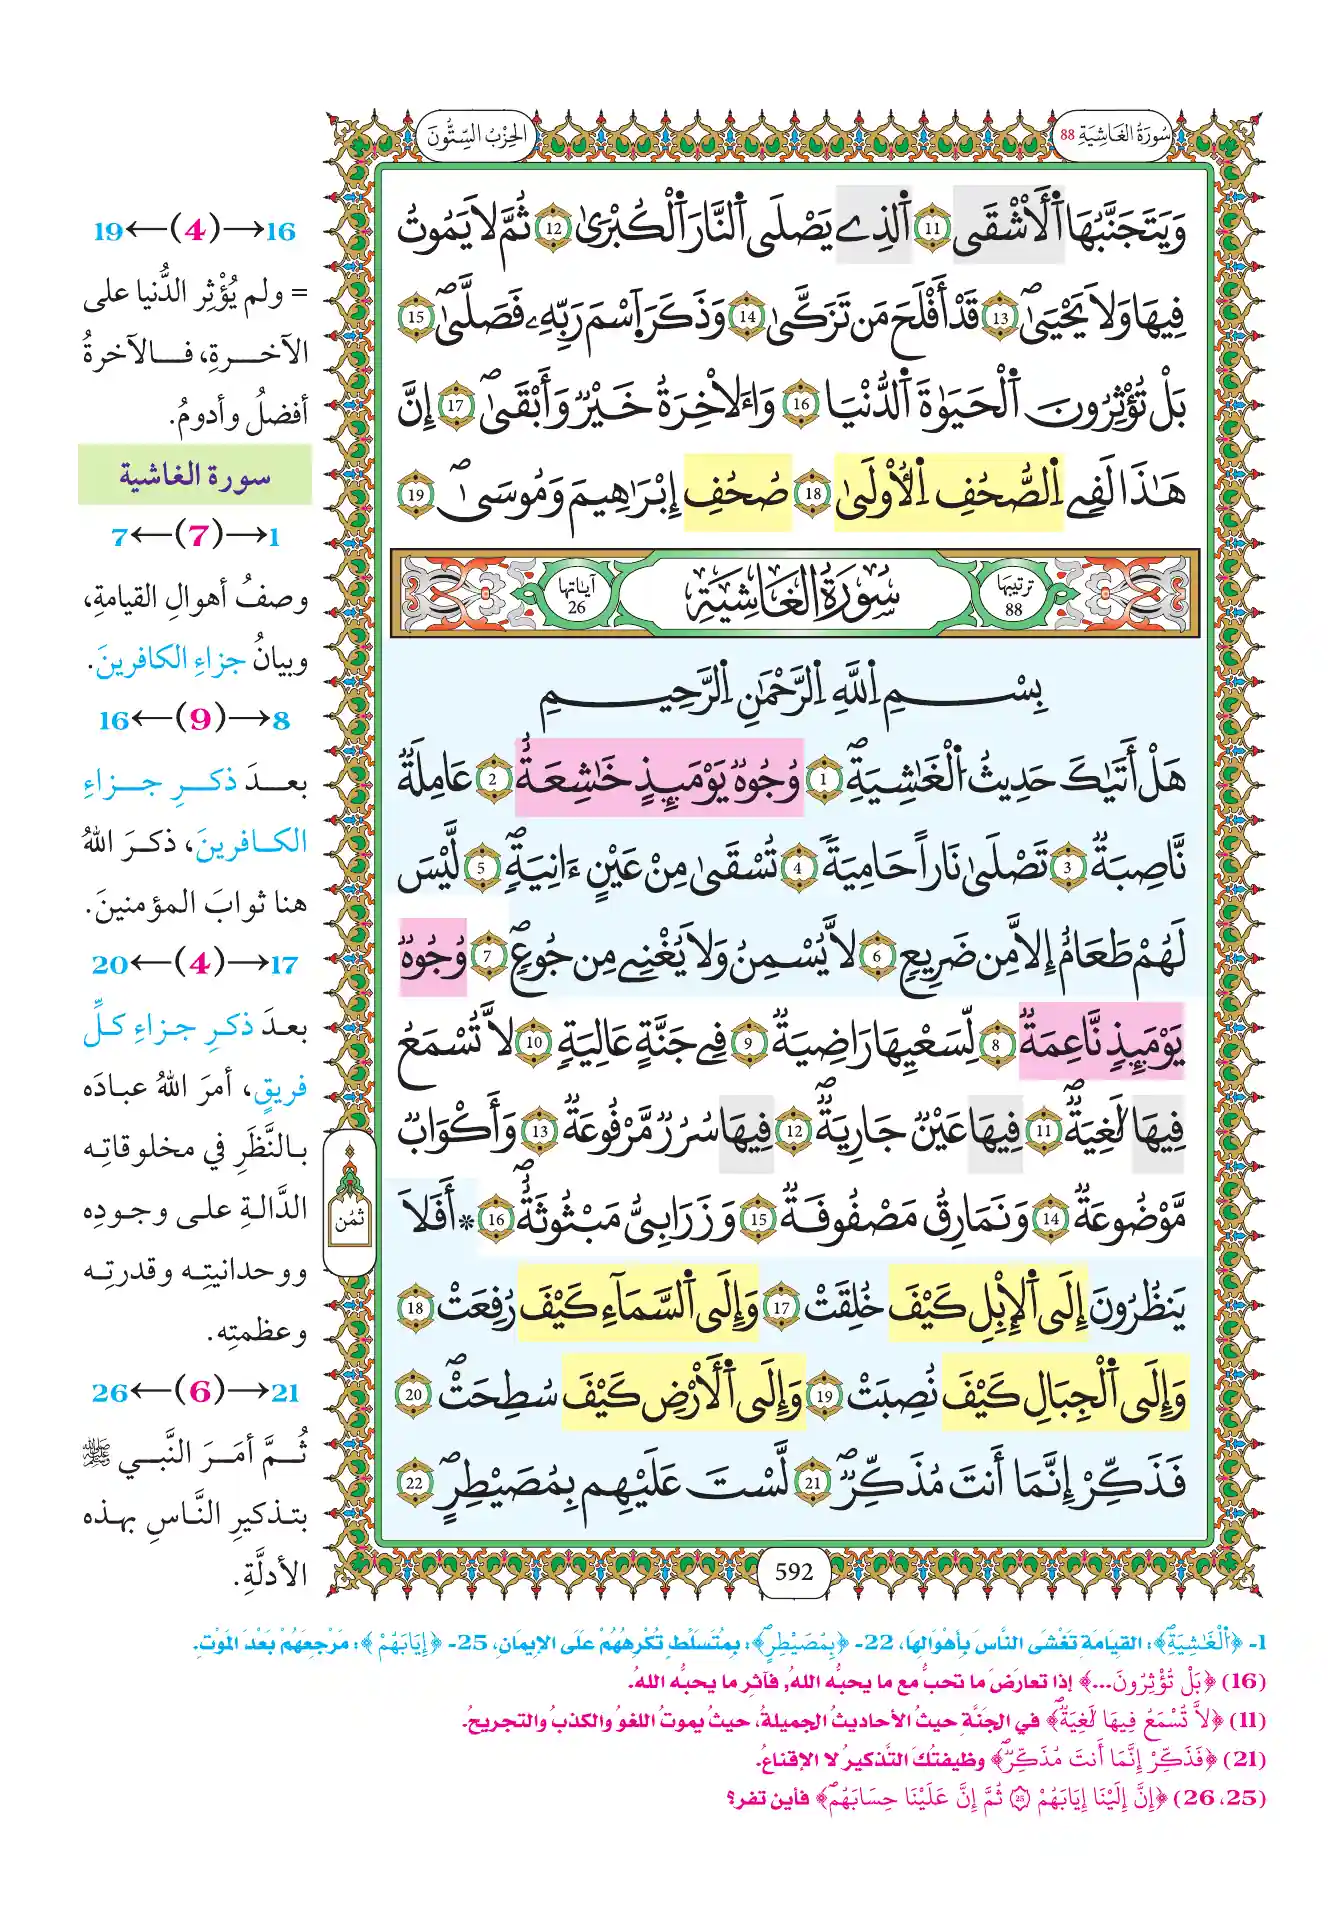 سُورَةُ الغَاشِيَةِ 88
الحِزْبُ السِّتُّونَ
وَيَتَجَنَّبُهَا اَ۬لْأَشْقَى 11 اَ۬لذِے يَصْلَى اَ۬لنَّارَ اَ۬لْكُبْرىٰ 12 ثُمَّ لَا يَمُوتُ
فِيهَا وَلَا يَحْيَىٰۖ 13 قَدْ أَفْلَحَ مَن تَزَكَّىٰ 14 وَذَكَرَ اَ۪سْمَ رَبِّهِۦ فَصَلَّىٰۖ 15
بَلْ تُؤْثِرُونَ اَ۬لْحَيَوٰةَ اَ۬لدُّنْيَا 16 وَالَاخِرَةُ خَيْرٌ وَأَبْقَىٰۖ 17 إِنَّ
هَٰذَا لَفِے اِ۬لصُّحُفِ اِ۬لُاولَىٰ 18 صُحُفِ إِبْرَٰهِيمَ وَمُوسَىٰۖ 19
سُورَةُ الغَاشِيَةِ
ترتيبها 88
آياتها 26
بِسْمِ اِ۬للَّهِ اِ۬لرَّحْمَٰنِ اِ۬لرَّحِيمِ
هَلْ أَتَيٰكَ حَدِيثُ اُ۬لْغَٰشِيَةِۖ 1 وُجُوهٌ يَوْمَئِذٍ خَٰشِعَةٌ 2 عَامِلَةٌ
نَّاصِبَةٌ 3 تَصْلَىٰ نَاراً حَامِيَةً 4 تُسْقَىٰ مِنْ عَيْنٍ ءَانِيَةٍۖ 5 لَّيْسَ
لَهُمْ طَعَامٌ إِلَّا مِن ضَرِيعٍ 6 لَّا يُسْمِنُ وَلَا يُغْنِے مِن جُوعٍۖ 7 وُجُوهٌ
يَوْمَئِذٍ نَّاعِمَةٌ 8 لِّسَعْيِهَا رَاضِيَةٌ 9 فِے جَنَّةٍ عَالِيَةٍ 10 لَّا تُسْمَعُ
فِيهَا لَٰغِيَةٌۖ 11 فِيهَا عَيْنٌ جَارِيَةٌۖ 12 فِيهَا سُرُرٌ مَّرْفُوعَةٌ 13 وَأَكْوَابٌ
مَّوْضُوعَةٌ 14 وَنَمَارِقُ مَصْفُوفَةٌ 15 وَزَرَابِيُّ مَبْثُوثَةٌۖ 16 * أَفَلَا
يَنظُرُونَ إِلَى اَ۬لْإِبِلِ كَيْفَ خُلِقَتْ 17 وَإِلَى اَ۬لسَّمَآءِ كَيْفَ رُفِعَتْ 18
وَإِلَى اَ۬لْجِبَالِ كَيْفَ نُصِبَتْ 19 وَإِلَى اَ۬لْأَرْضِ كَيْفَ سُطِحَتْۖ 20
فَذَكِّرْ إِنَّمَا أَنتَ مُذَكِّرٌۖ 21 لَّسْتَ عَلَيْهِم بِمُصَيْطِرٍۖ 22
592
ثُمُن
16→(4)←19
= ولم يُؤْثِر الدُّنيا على
الآخرةِ، فالآخرةُ
أفضلُ وأدومُ.
سورة الغاشية
1→(7)←7
وصفُ أهوالِ القيامةِ،
وبيانُ جزاءِ الكافرينَ.
8→(9)←16
بعدَ ذكرِ جزاءِ
الكافرينَ، ذكرَ اللهُ
هنا ثوابَ المؤمنينَ.
17→(4)←20
بعدَ ذكرِ جزاءِ كلِّ
فريقٍ، أمرَ اللهُ عبادَه
بالنَّظَرِ في مخلوقاتِه
الدَّالةِ على وجودِه
ووحدانيتِه وقدرتِه
وعظمتِه.
21→(6)←26
ثُمَّ أمَرَ النَّبي ﷺ
بتذكيرِ النَّاسِ بهذه
الأدلَّةِ.
1- ﴿اُ۬لْغَٰشِيَةِۖ﴾: القِيَامَةِ تَغْشَى النَّاسَ بِأَهْوَالِهَا، 22- ﴿بِمُصَيْطِرٍۖ﴾: بِمُتَسَلِّطٍ تُكْرِهُهُمْ عَلَى الإِيمَانِ، 25- ﴿إِيَابَهُمْ﴾: مَرْجِعَهُمْ بَعْدَ المَوْتِ.
(16) ﴿بَلْ تُؤْثِرُونَ...﴾ إذا تعارَضَ ما تحبُّ مع ما يحبُّه اللهُ، فآثِر ما يحبُّه اللهُ.
(11) ﴿لَّا تُسْمَعُ فِيهَا لَٰغِيَةٌۖ﴾ في الجَنَّةِ حيثُ الأحاديثُ الجميلةُ، حيثُ يموتُ اللغو والكذبُ والتجريحُ.
(21) ﴿فَذَكِّرْ إِنَّمَا أَنتَ مُذَكِّرٌۖ﴾ وظيفتُكَ التَّذكيرُ لا الإقناعُ.
(25، 26) ﴿إِنَّ إِلَيْنَا إِيَابَهُمْ 25 ثُمَّ إِنَّ عَلَيْنَا حِسَابَهُمۖ﴾ فأين تفر؟